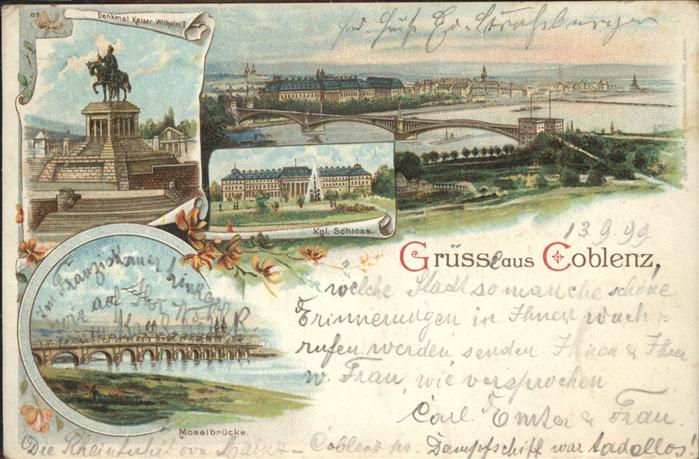 67
Denkmal Kaiser Wilhelm I
Ed. Strassburger
Kgl. Schloss.
13.9.99
Grüsse aus Coblenz,
welche Stadt so manche schöne
Erinnerungen in Ihnen wach-
rufen werden senden Ihnen & Ihrer
w. Frau, wie versprochen
Carl & Frau.
Im Franziskaner
wir auf
Moselbrücke.
Die Rheinfahrt von Mainz - Coblenz pr. Dampfschiff war tadellos!